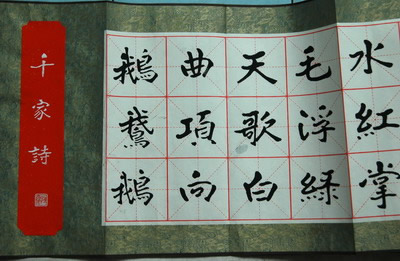 千家詩
鵝鵞鵝
曲項向
天歌白
毛浮綠
水紅掌